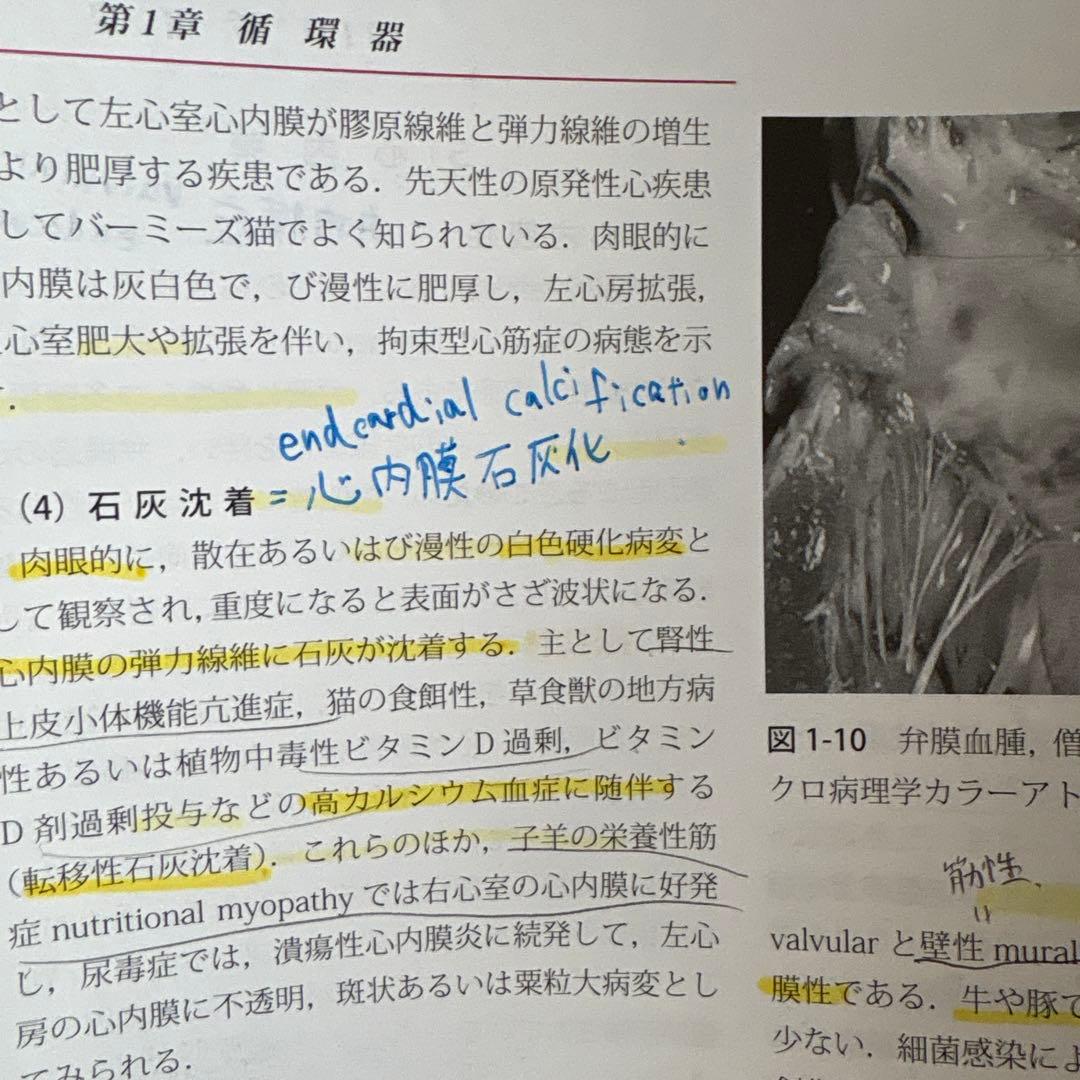 第1章 循環器
として左心室心内膜が膠原線維と弾力線維の増生
より肥厚する疾患である．先天性の原発性心疾患
してバーミーズ猫でよく知られている．肉眼的に
内膜は灰白色で，び漫性に肥厚し，左心房拡張，
心室肥大や拡張を伴い，拘束型心筋症の病態を示
．
endcardial calcification
（4）石灰沈着 = 心内膜石灰化
肉眼的に，散在あるいはび漫性の白色硬化病変と
して観察され，重度になると表面がさざ波状になる．
心内膜の弾力線維に石灰が沈着する．主として腎性
上皮小体機能亢進症，猫の食餌性，草食獣の地方病
性あるいは植物中毒性ビタミンD過剰，ビタミン
D剤過剰投与などの高カルシウム血症に随伴する
（転移性石灰沈着）．これらのほか，子羊の栄養性筋
症 nutritional myopathy では右心室の心内膜に好発
し，尿毒症では，潰瘍性心内膜炎に続発して，左心
房の心内膜に不透明，斑状あるいは粟粒大病変とし
てみられる．
図1-10 弁膜血腫，僧
クロ病理学カラーアト
筋性、
valvular と壁性 mural
膜性である．牛や豚で
少ない．細菌感染によ